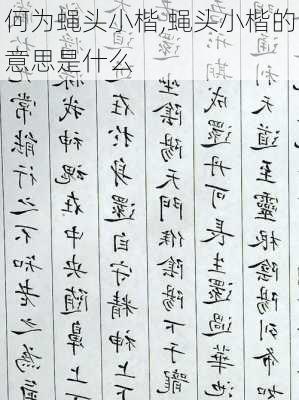 何为蝇头小楷,蝇头小楷的
意思是什么
常能行之不知老之為
我神魂在中央隨鼻上下
在於身還自守精神上下
坐陰陽天門候陰陽下于龍
期成還丹可長生還過華池
通利天道至靈根陰陽列布如